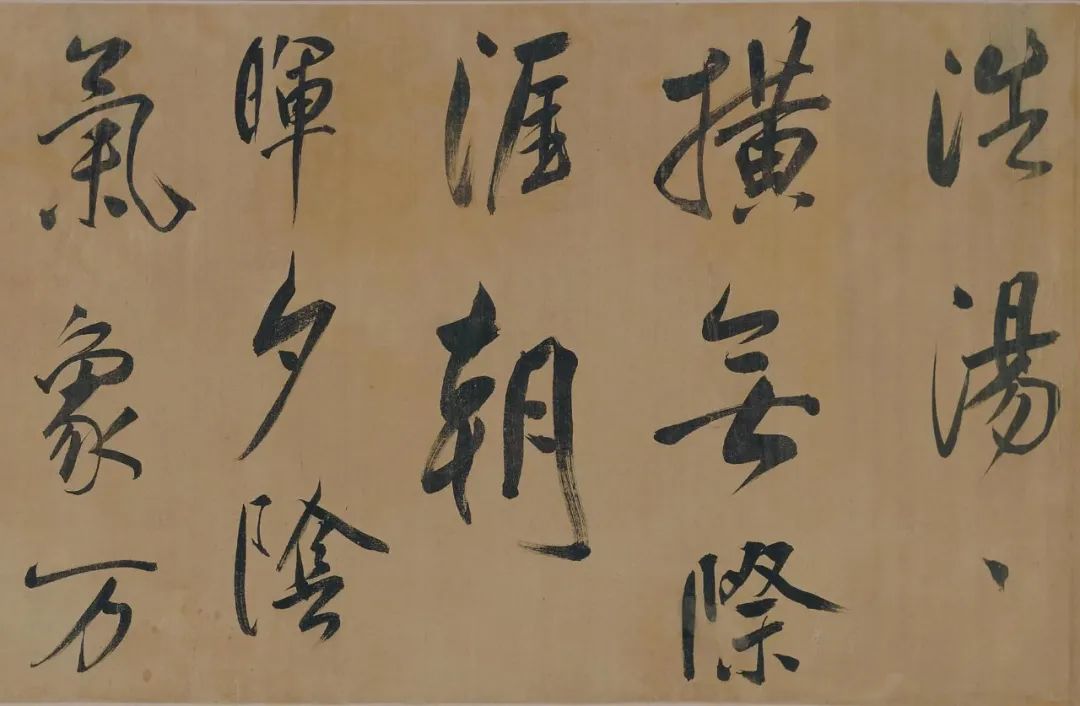 浩湯、
撗無際
涯朝
暉夕陰
氣象万